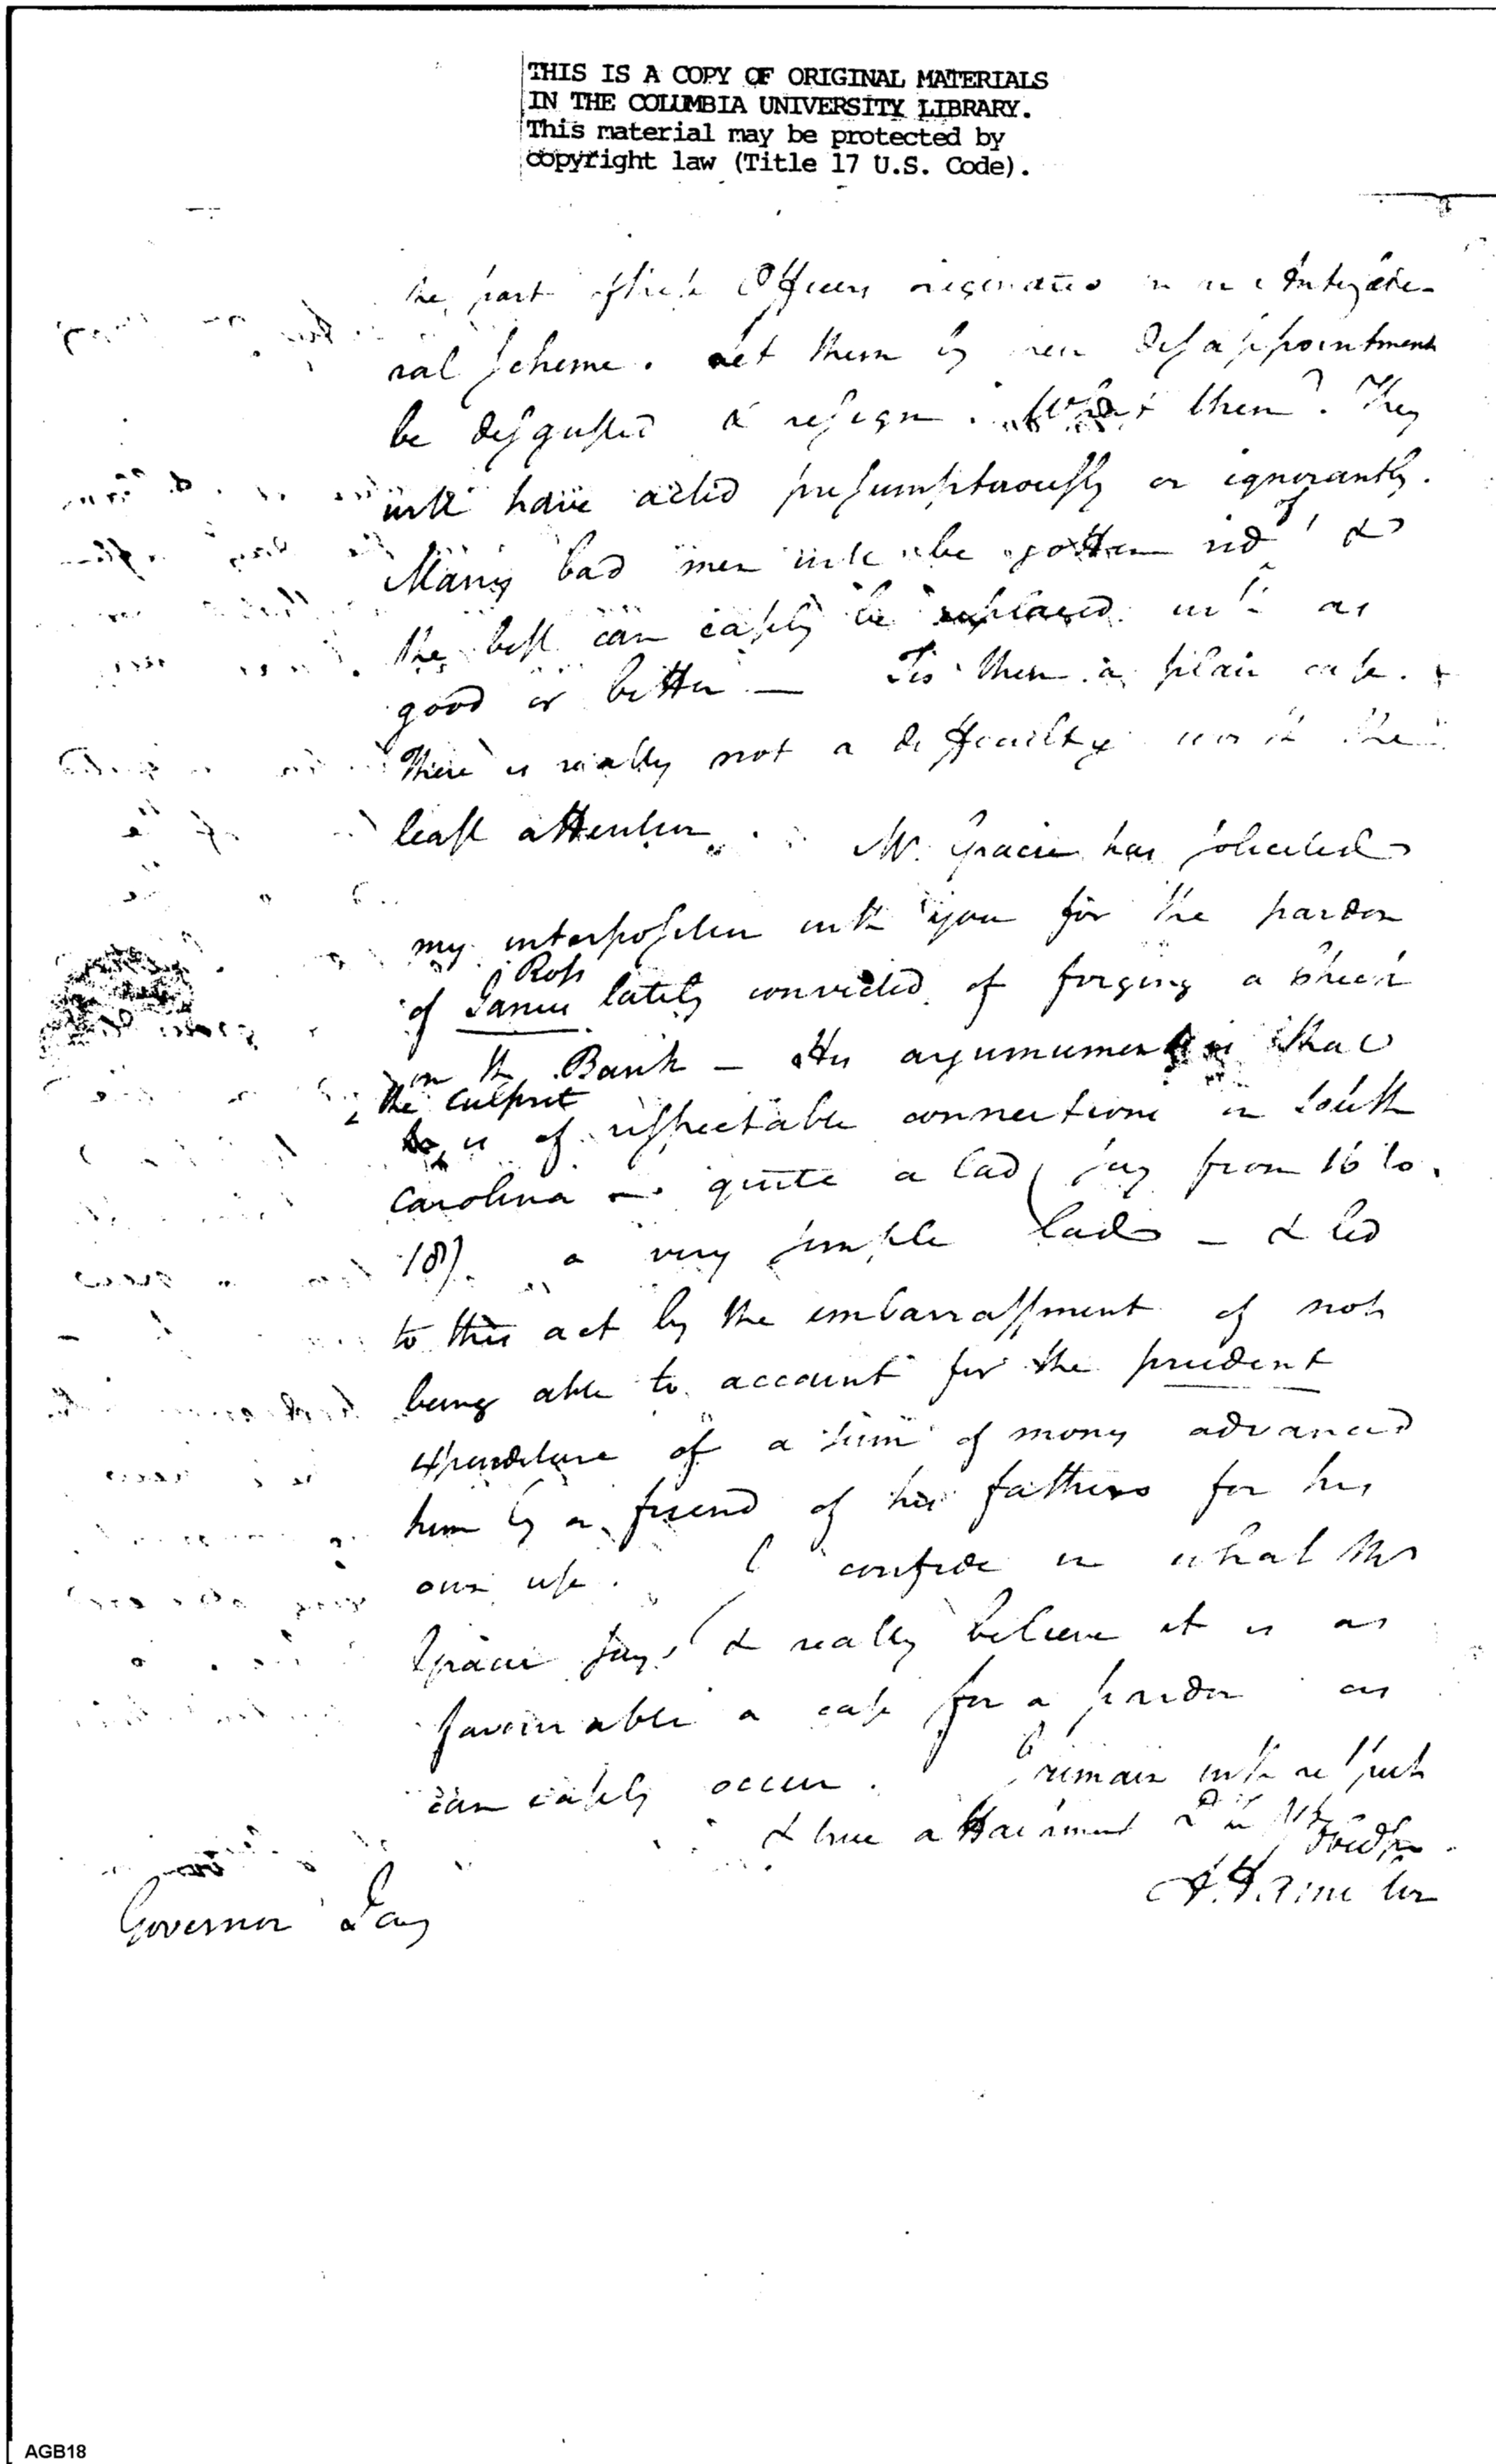 THIS IS A COPY OF ORIGINAL MATERIALS
IN THE COLUMBIA UNIVERSITY LIBRARY.
This material may be protected by
copyright law (Title 17 U.S. Code).
the part of these Officers originates in
ral scheme. Let them by disappointment
be disgusted & resign. What then? They
will have acted presumptuously or ignorantly.
Many bad men will be gotten rid of &
the best can easily be replaced with as
good or better — Tis then a plain case.
There is really not a difficulty worth the
least attention. Mr. Gracie has solicited
my interposition with you for the pardon
Ross
of James lately convicted of forging a check
on the Bank — His that
the culprit
is of respectable connections in South
Carolina — quite a lad (say from 16 to
18) a very simple lad — & led
to this act by the embarrassment of not
being able to account for the prudent
expenditure of a sum of mony advanced
him by a friend of his fathers for his
own use. I confide in what Mr
Gracie says & really believe it is as
favourable a case for a pardon as
can easily occur. I remain with respect
& true attachment Dr Sir Yr
A Hamilton
Governor Jay
AGB18